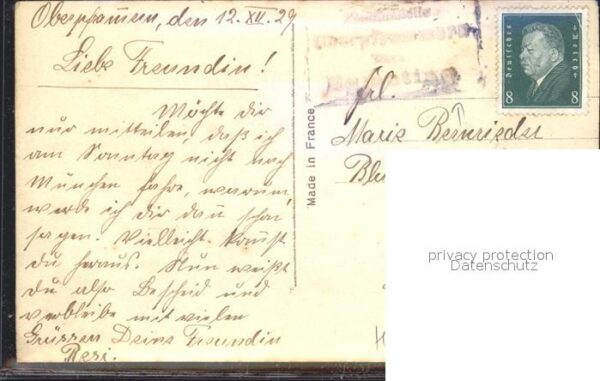 Oberpframmern, den 12. XII. 29
Liebe Freundin!
Möchte dir
nur mitteilen, daß ich
am Sonntag nicht nach
München fahre, warum,
werde ich dir dan schon
sagen. Vielleicht kommst
du heraus. Nun weißt
du also Bescheid und
verbleibe mit vielen
Grüssen Deine Freundin
Resi.
Made in France
Frl.
Marie Bernrieder
Deutsches Reich
8 8
privacy protection
Datenschutz